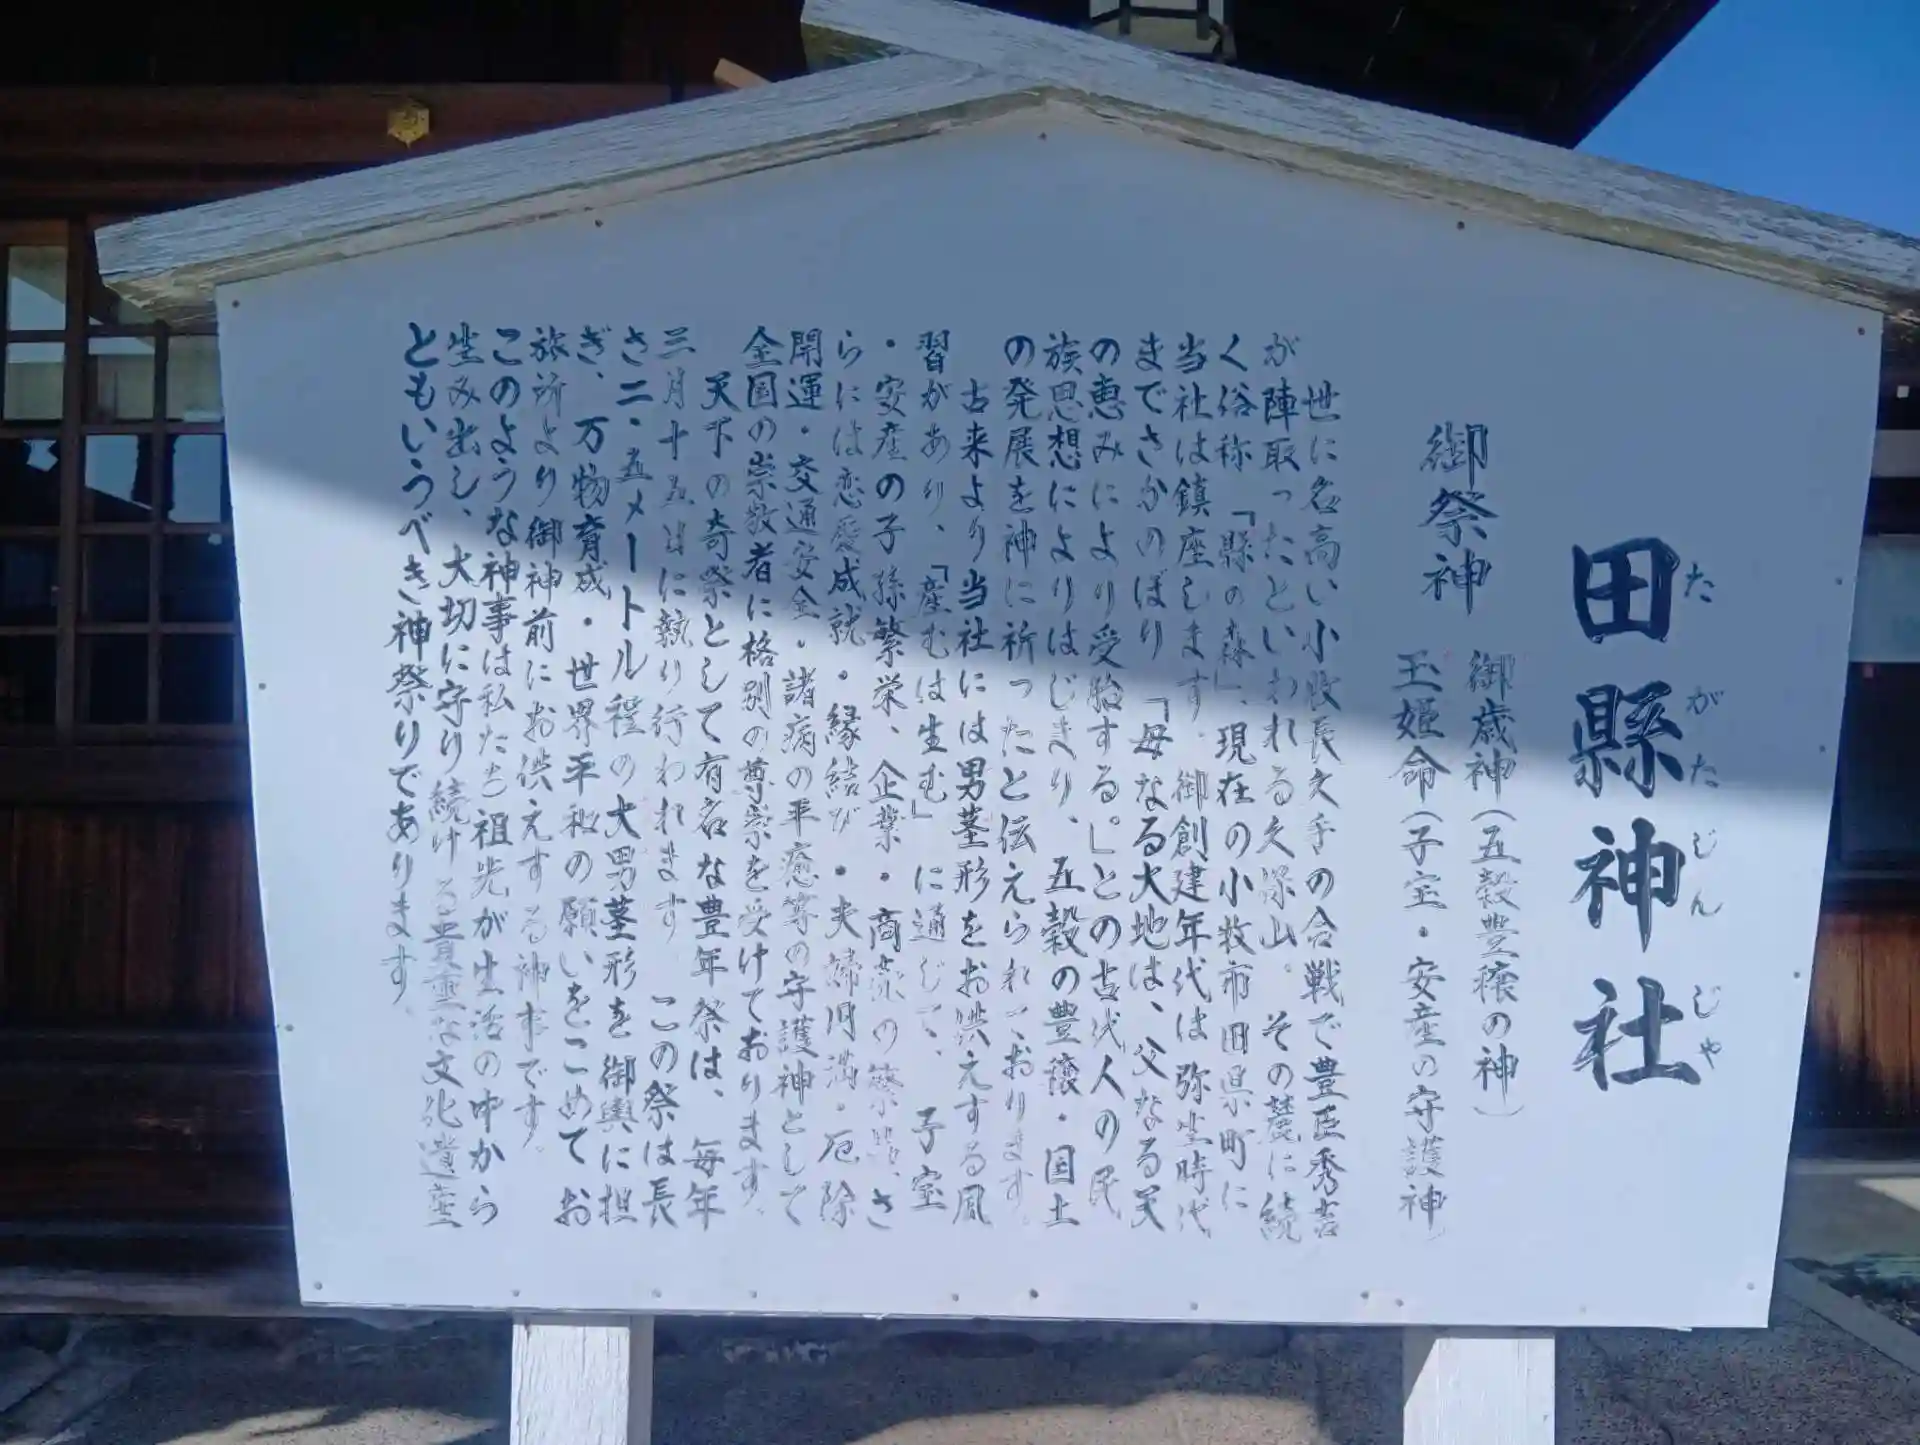 田縣神社
たがたじんじゃ
御祭神
御歳神(五穀豊穣の神)
玉姫命(子宝・安産の守護神)
世に名高い小牧長久手の合戦で豊臣秀吉
が陣取ったといわれる久保山。その麓に続
く俗称「縣の森」、現在の小牧市田県町に
当社は鎮座します。御創建年代は弥生時代
までさかのぼり「母なる大地は、父なる天
の恵みにより受胎する。」との古代人の民
族思想によりはじまり、五穀の豊穣・国土
の発展を神に祈ったと伝えられております。
古来より当社には男茎形をお供えする風
習があり、「産むは生む」に通じて、子宝
・安産の子孫繁栄、企業・商売の繁盛、さ
らには恋愛成就・縁結び・夫婦円満・厄除
開運・交通安全・諸病の平癒等の守護神として
全国の崇敬者に格別の尊崇を受けております。
天下の奇祭として有名な豊年祭は、毎年
三月十五日に執り行われます。この祭は長
さ二・五メートル程の大男茎形を御輿に担
ぎ、万物育成・世界平和の願いをこめてお
旅所より御神前にお供えする神事です。
このような神事は私たち祖先が生活の中から
生み出し、大切に守り続ける貴重な文化遺産
ともいうべき神祭りであります。